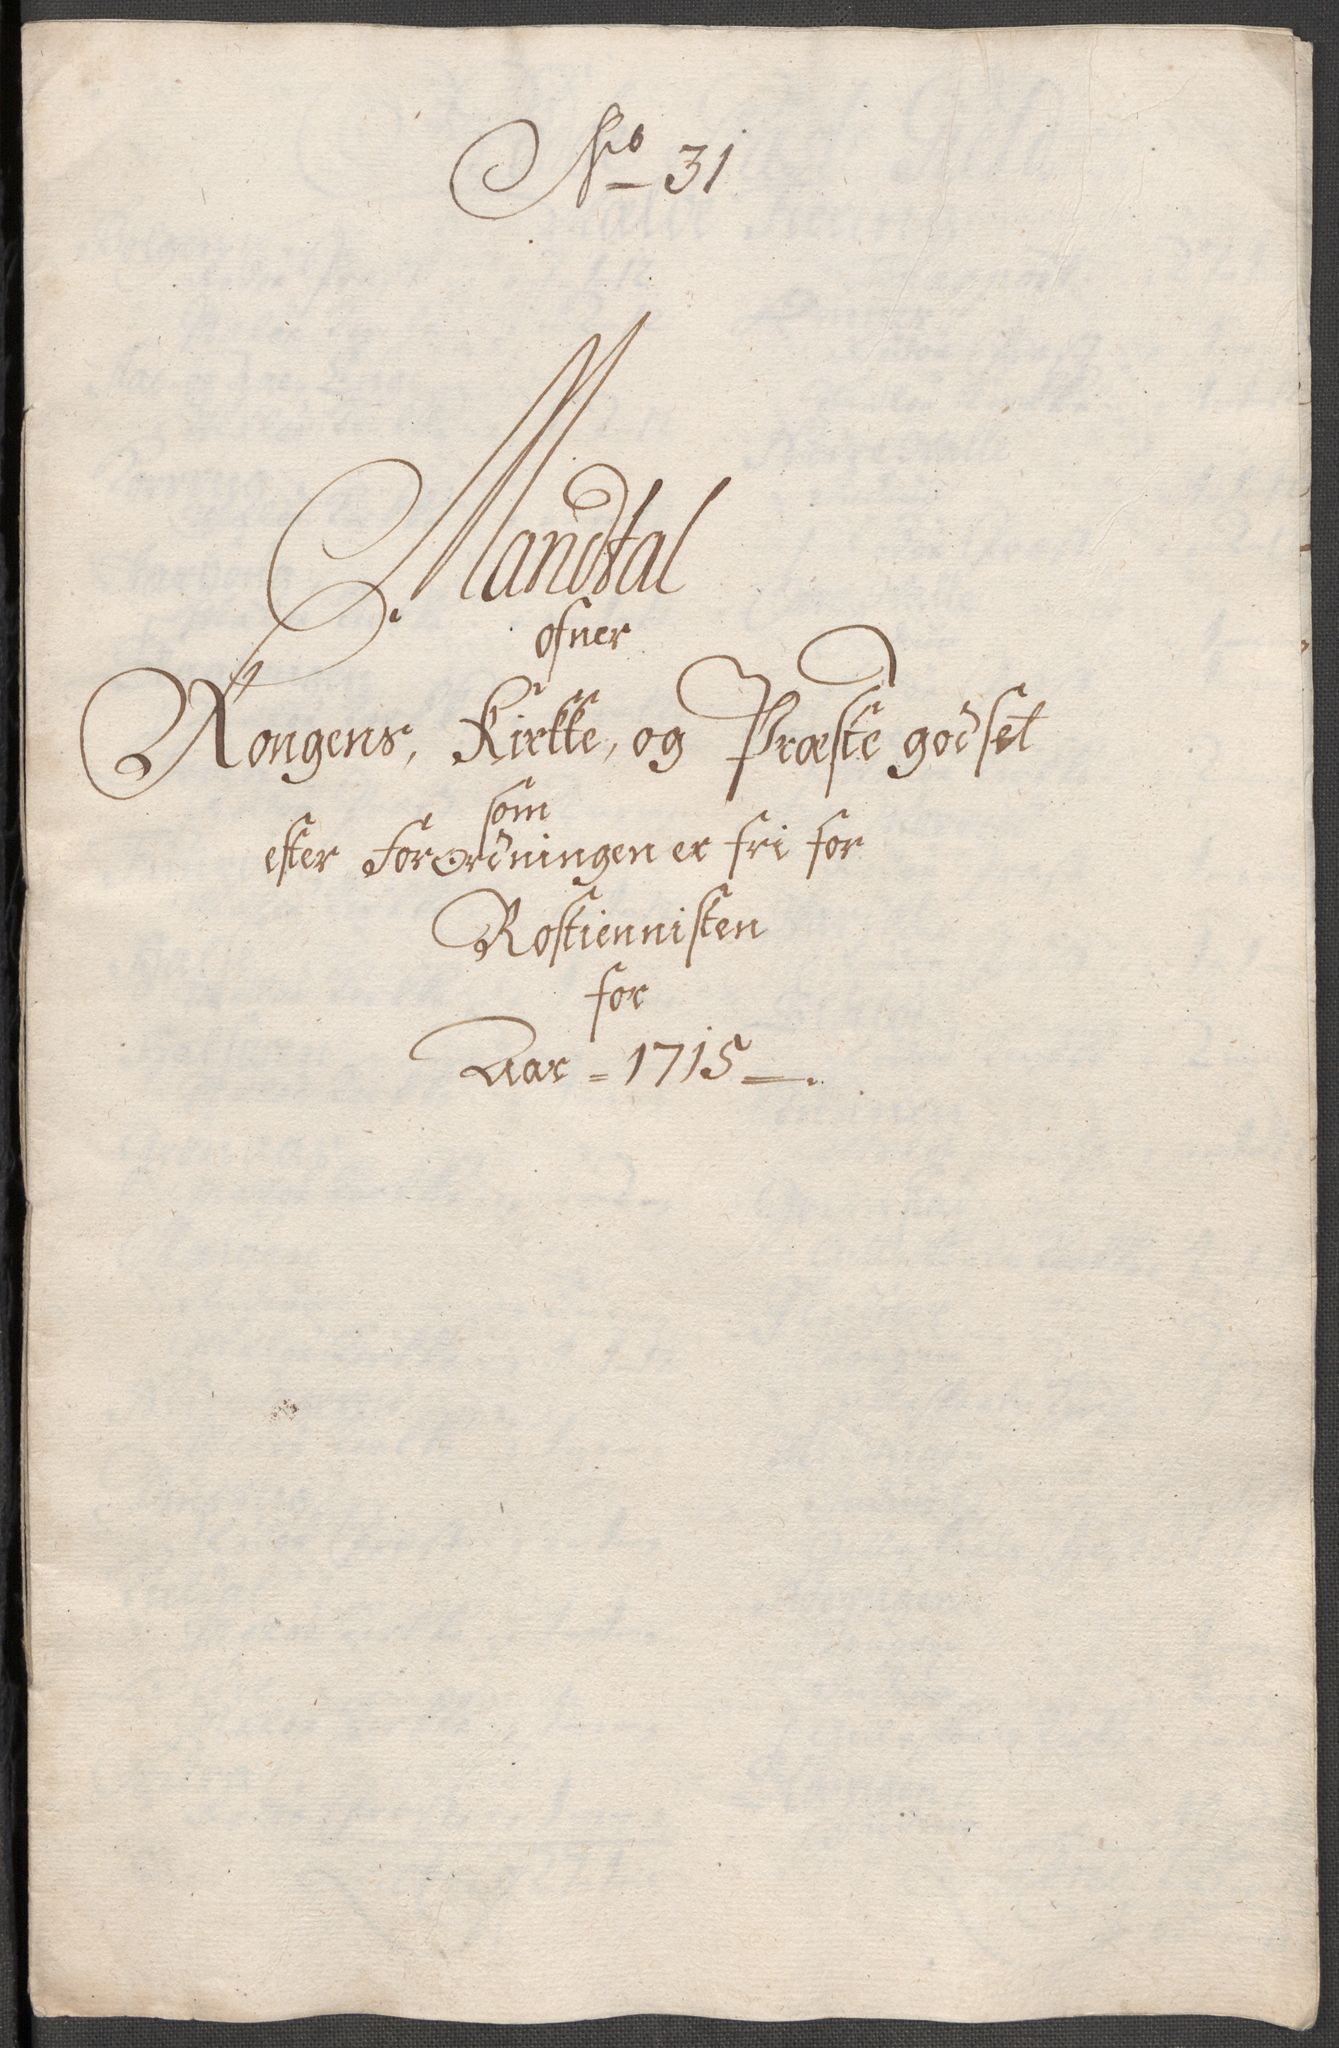 No 31
Mandtal
ofuer
Kongens, Kirkke, og Præste godset
som
efter Forordningen er fri for
Rostiennisten
for
Aar = 1715